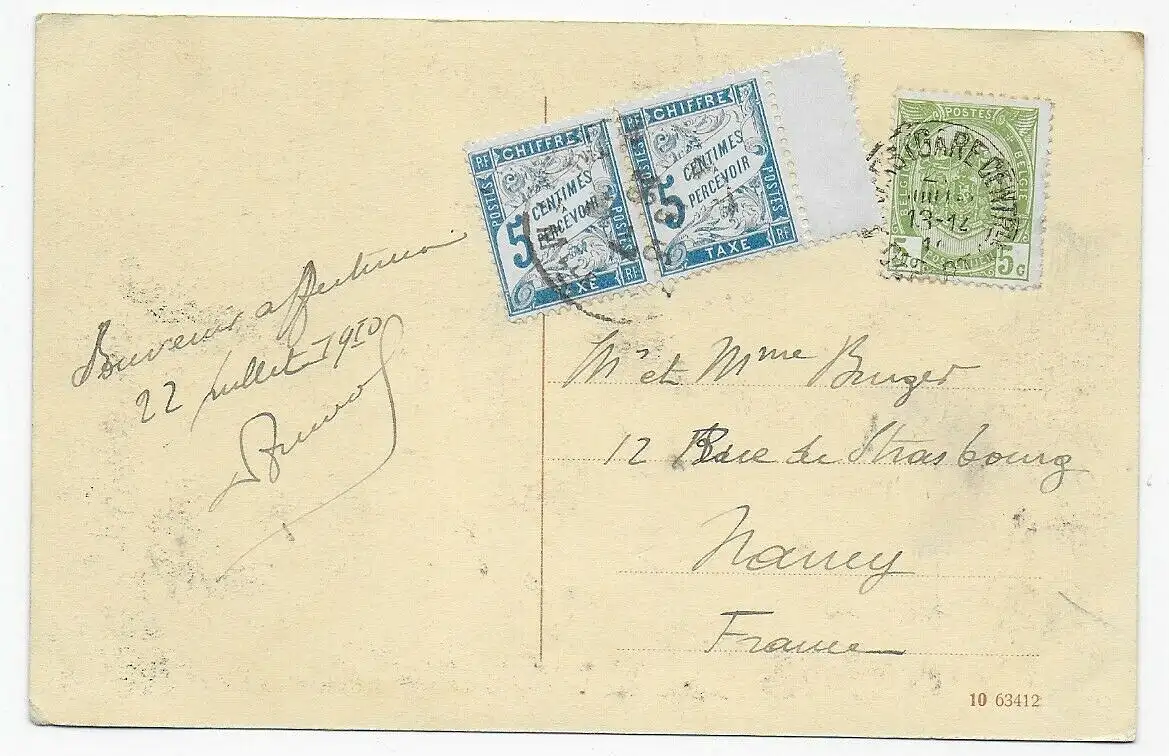 RF CHIFFRE RF
POSTES 5 CENTIMES
À PERCEVOIR POSTES
TAXE RF
RF CHIFFRE
POSTES 5 CENTIMES
À PERCEVOIR POSTES
TAXE RF
POSTES
BELGIE BELGIQUE
5 5 C
GARE CENTR
13-14
Souvenir affectueux
22 juillet 1910
Mr et Mme Burger
12 Rue de Strasbourg
Nancy
France
10 63412